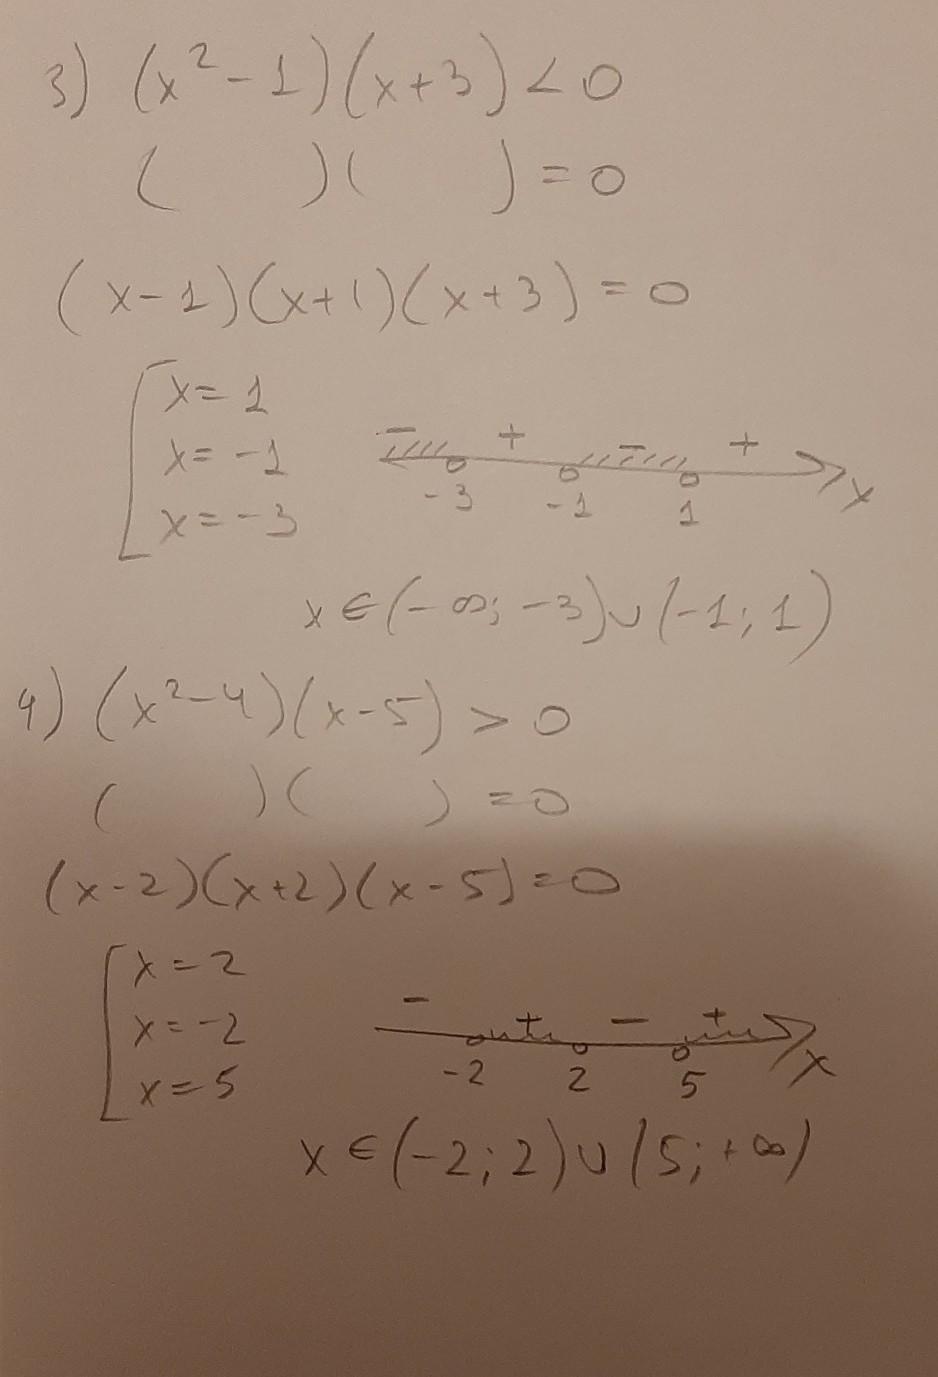 3) (x²-1)(x+3)<0
( )( )=0
(x-1)(x+1)(x+3)=0
x=1
x=-1
x=-3
- + - +
-3 -1 1 x
x∈(-∞;-3)∪(-1;1)
4) (x²-4)(x-5)>0
( )( )=0
(x-2)(x+2)(x-5)=0
x=2
x=-2
x=5
- + - +
-2 2 5 x
x∈(-2;2)∪(5;+∞)